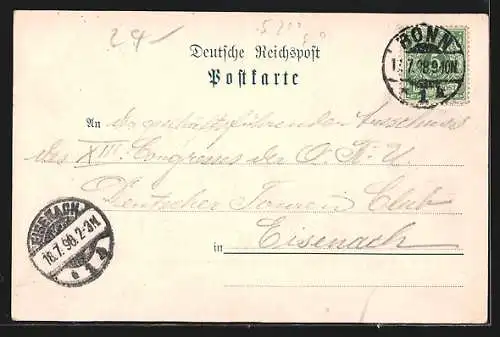 24
Deutsche Reichspost
Postkarte
BONN
17.7.98. 9-10N.
1
An den geschäftsführenden Ausschuss
des XIII. Congresses der O. R. U.
Deutscher Touren Club
in Eisenach
EISENACH
18.7.98. 2-3N
1